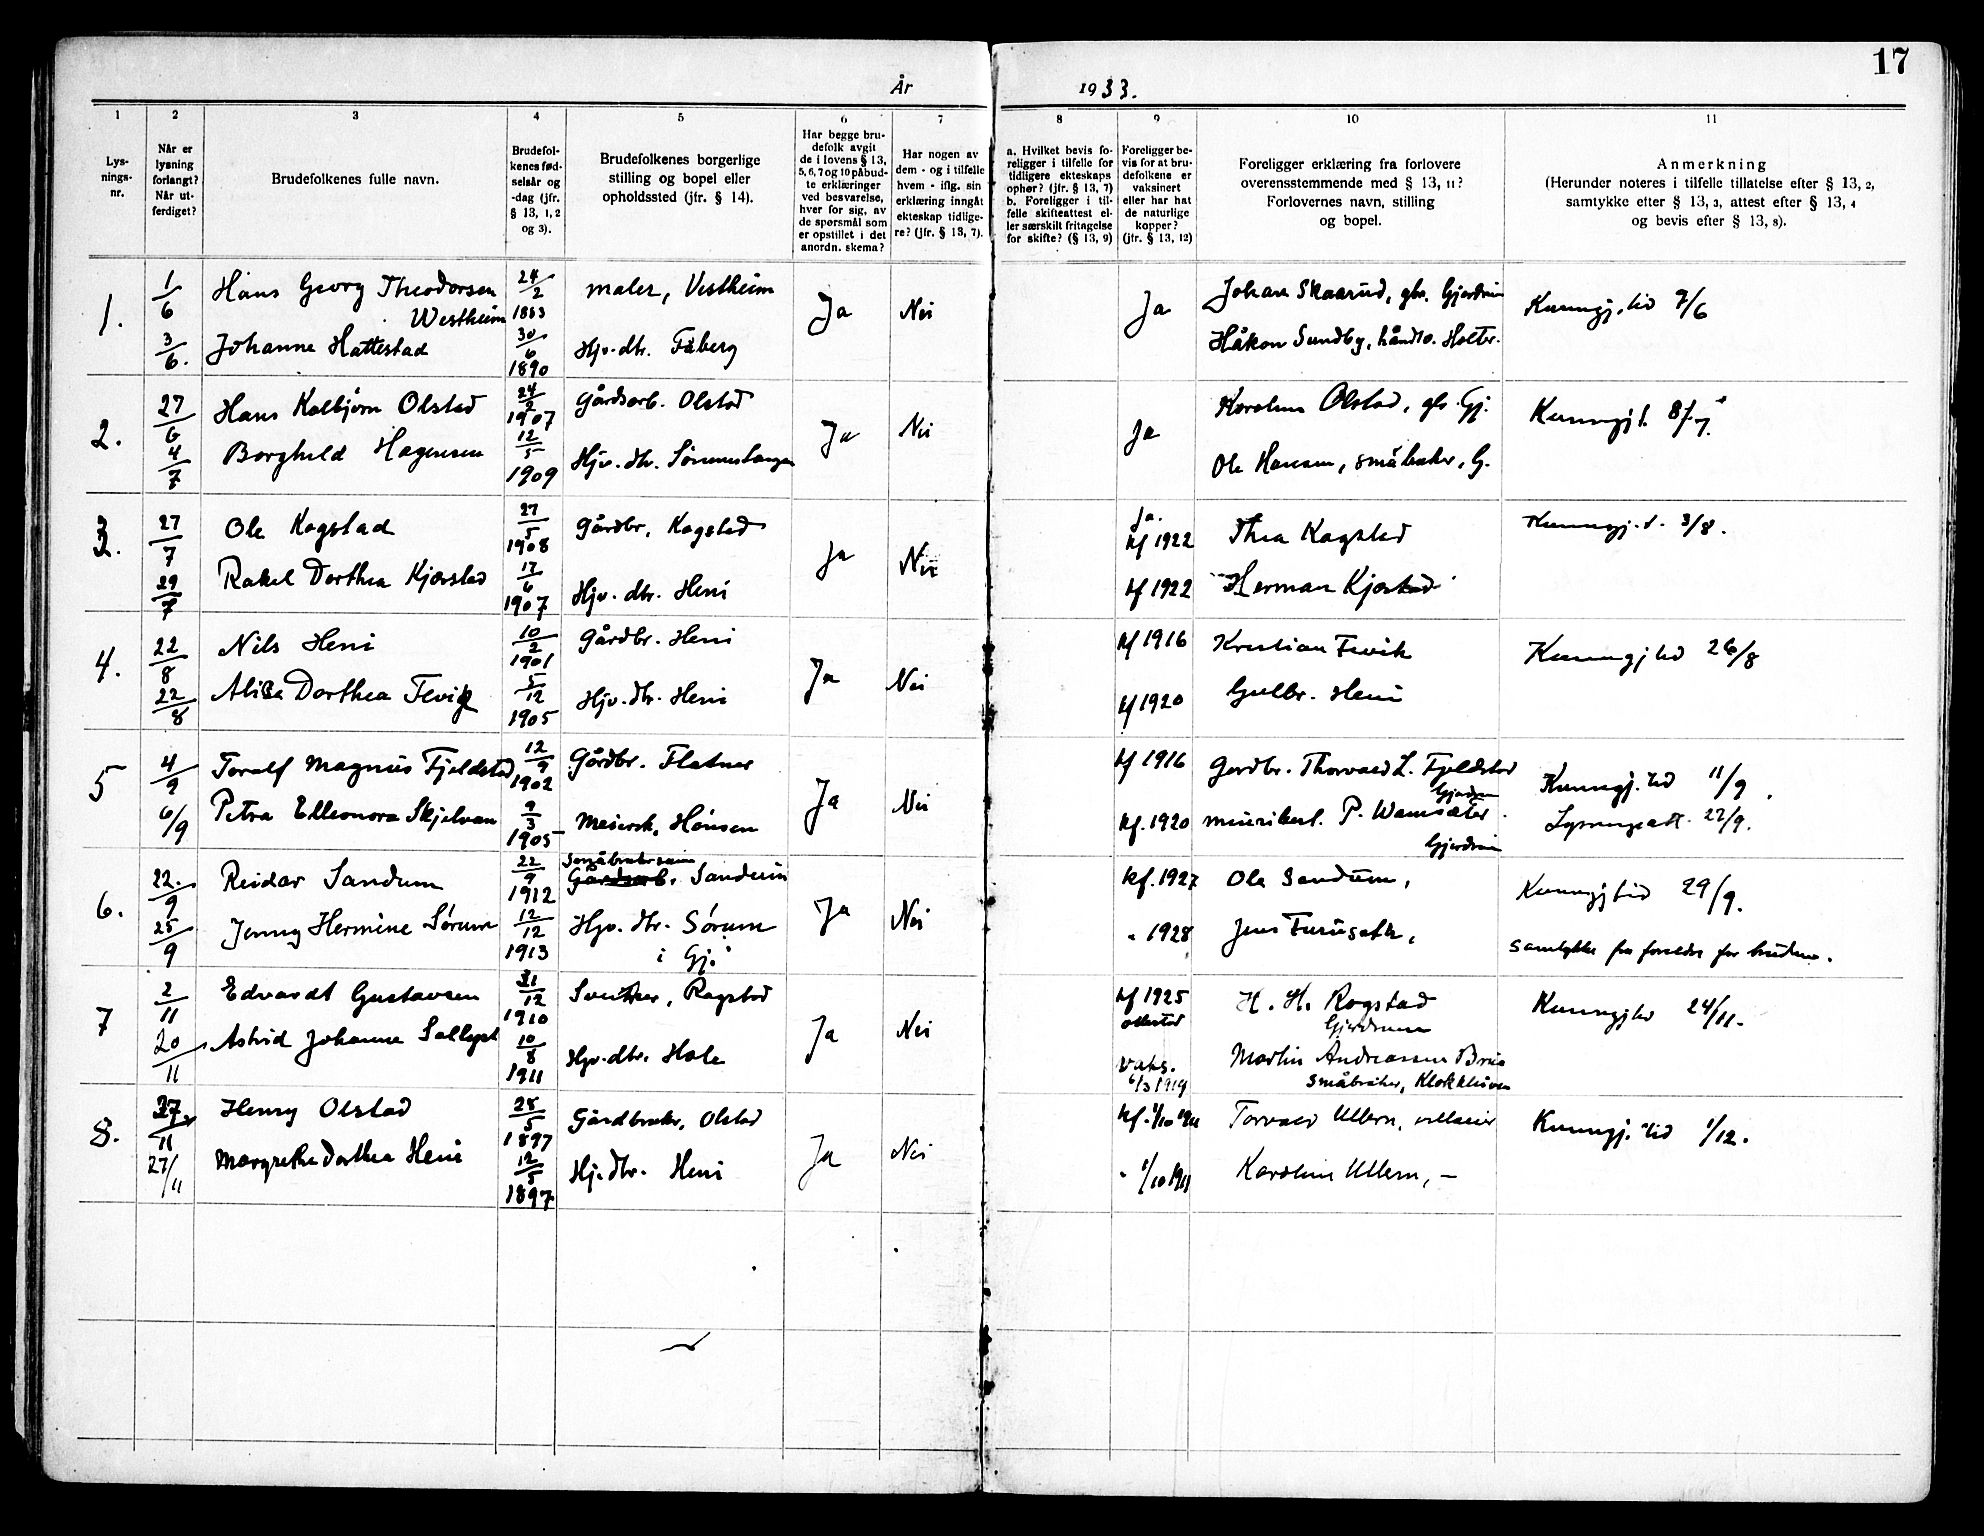 17
År 1933.
1 2 3 4 5 6 7 8 9 10 11
Lys-
nings-
nr.
Når er
lysning
forlangt?
Når ut-
ferdiget?
Brudefolkenes fulle navn.
Brudefol-
kenes fød-
selsår og
-dag (jfr.
§ 13, 1, 2
og 3).
Brudefolkenes borgerlige
stilling og bopel eller
opholdssted (jfr. § 14).
Har begge bru-
defolk avgit
de i lovens § 13,
5, 6, 7 og 10 påbud-
te erklæringer
ved besvarelse,
hver for sig, av
de spørsmål som
er opstillet i det
anordn. skema?
Har nogen av
dem - og i tilfelle
hvem - iflg. sin
erklæring inngåt
ekteskap tidlige-
re? (jfr. § 13, 7).
a. Hvilket bevis fo-
religger i tilfelle for
tidligere ekteskaps
ophør? (jfr. § 13, 7)
b. Foreligger i til-
felle skifteattest el-
ler særskilt fritagelse
for skifte? (§ 13, 9)
Foreligger be-
vis for at bru-
defolkene er
vaksinert
eller har hat
de naturlige
kopper?
(jfr. § 13, 12)
Foreligger erklæring fra forlovere
overensstemmende med § 13, 11?
Forlovernes navn, stilling
og bopel.
Anmerkning
(Herunder noteres i tilfelle tillatelse efter § 13, 2,
samtykke efter § 13, 3, attest efter § 13, 4
og bevis efter § 13, 8).
1. 1/6 Hans Georg Theodorsen Westheim 24/2 1863 maler, Vestheim Ja Nei Ja Johan Skaarud, gbr. Gjerdrum Kunngj. tid 7/6
3/6. Johanne Hattestad 30/6 1890 Hjv. dtr. Fåberg Håkon Sundby, håndv. Holter.
2. 27/6 Hans Kolbjørn Olstad 24/2 1907 Gårdsarb. Olstad Ja Nei Ja Karolina Olstad, gbr. Gj. Kunngj. t. 8/7.
4/7 Borghild Hagensen 12/5 1909 Hjv. dtr. Ole Hansen, småbruker, G.
3. 27/7 Ole Kogstad 27/5 1908 Gårdbr, Kogstad Ja Nei Ja. kf 1922 Thea Kogstad Kunngj. t. 3/8.
29/7 Rakel Dorthea Kjorstad 17/6 1907 Hjv. dtr. Heni kf 1922 Herman Kjorstad
4. 22/8 Nils Heni 10/2 1901 Gårdbr. Heni Ja Nei kf 1916 Kristian Fevik Kunngj tid 26/8
22/8 Alise Dorthea Flevik 5/12 1905 Hjv. dtr. Heni kf 1920 Gulbr. Heni
5 4/9 Toralf Magnus Fjeldstad 12/9 1902 Gårdbr. Flatner Ja Nei kf 1916 Gardbr. Thorvald L. Fjeldstad Gjerdrum Kunngj. tid 11/9.
6/9 Petra Elleonora Skjelvan 9/3 1905 Meiersk, Hønsen kf. 1920 P. Wamsæter Gjerdrum Lysningsatt. 22/9.
6. 22/9 Reidar Sandum 22/9 1912 Småbrukersønn Gårdsarb. Sandum Ja Nei kf. 1927 Ole Sandum, Kunngj tid 29/9.
25/9 Jenny Hermine Sørum 12/12 1913 Hjv. dtr. Sørum i Gj. " 1928 Jens Furuseth, Samtykke fra foreldre for bruden.
7 2/11 Edvardt Gustavsen 31/12 1910 Sveitser, Rogstad Ja Nei kf 1925 H. H. Rogstad Gjerdrum Kunngj tid 24/11.
20/11 Astrid Johanne 10/8 1911 Hjv. dtr. Hole Vaks. 6/3 1919 Martin Andreassen småbruker,
8. 27/11 Henry Olstad 28/5 1897 Gårdbruker, Olstad Ja Nei kf. 1/10 1911 Torvald Ullern, Kunngj. tid 1/12.
27/11 Margrethe Dorthea Heni 12/5 1897 Hj. dtr. Heni " 1/10 1911 Karoline Ullern, —